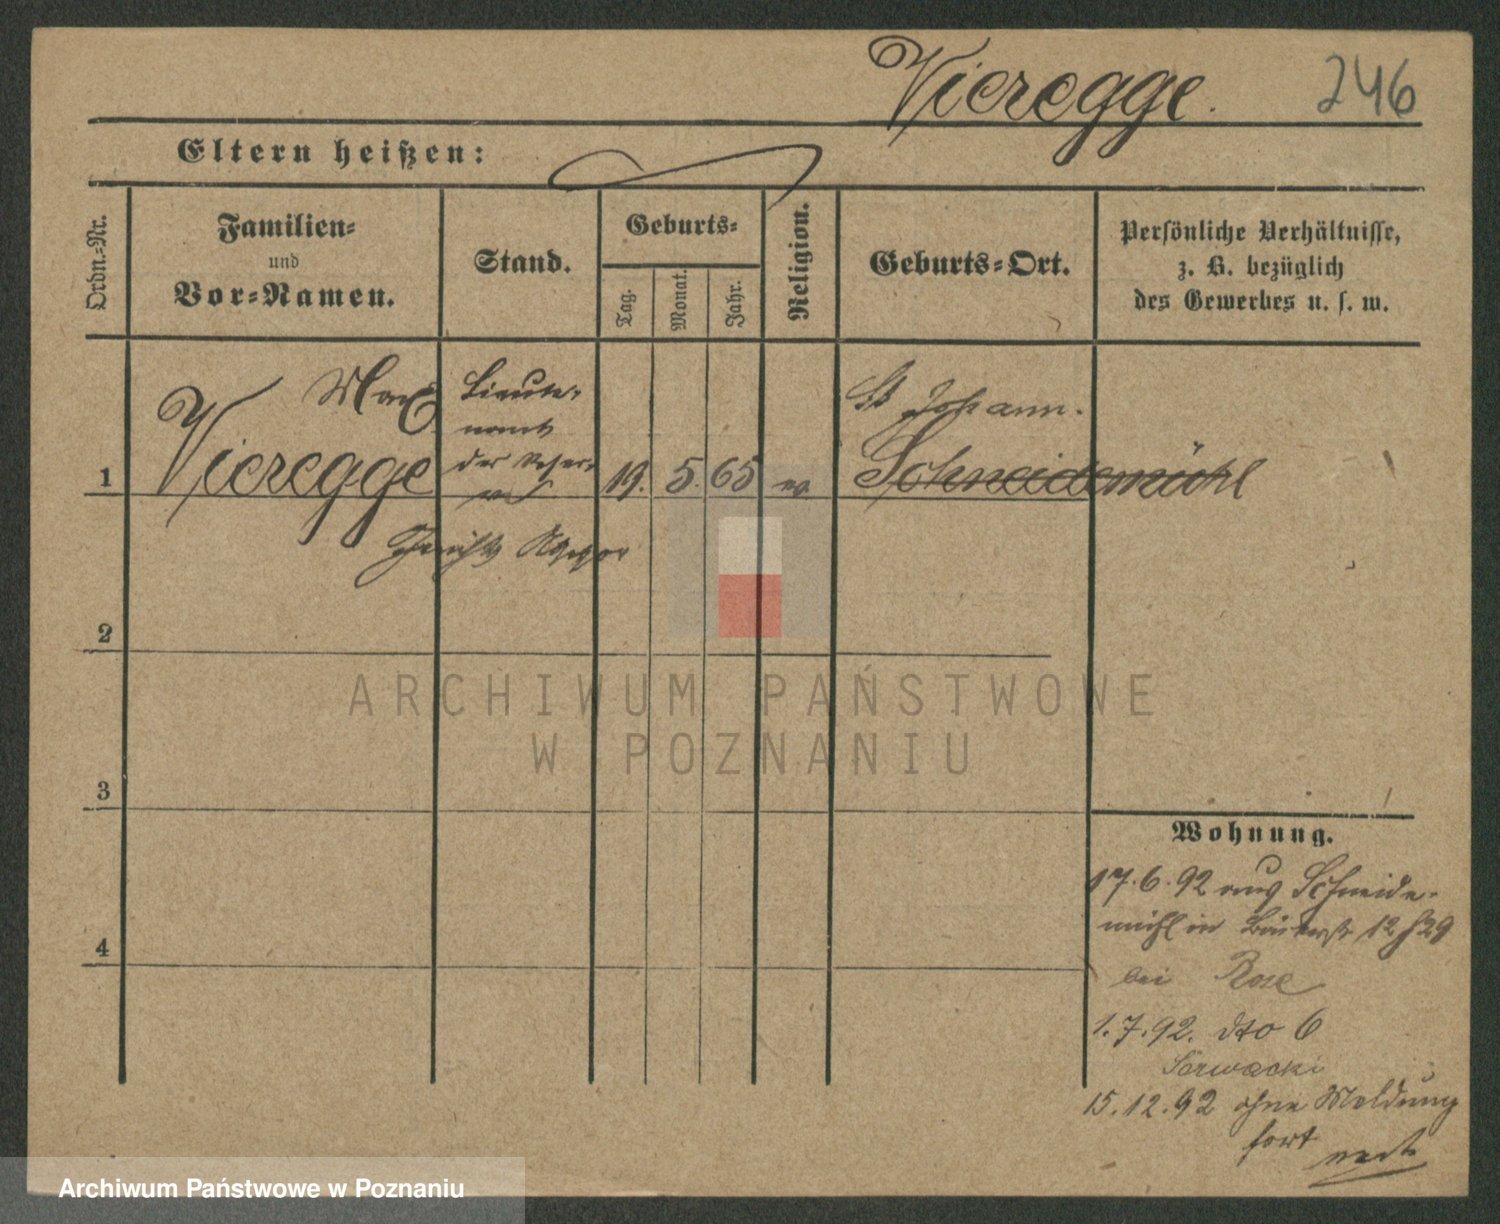 Vieregge. 246
Eltern heißen:
Ordn.-Nr.
Familien-
und
Vor-Namen.
Stand.
Geburts-
Tag.
Monat.
Jahr.
Religion.
Geburts-Ort.
Persönliche Verhältnisse,
z. B. bezüglich
des Gewerbes u. s. w.
1
Max
Vieregge
Lieute-
nant
der Reser-
ve
Gerichts Assessor
19. 5. 65 ev
St Johann.
Schneidemühl
2
3
4
Wohnung.
17.6.92 aus Schneide-
mühl in 12 29
bei Rose
1.7.92. dto 6
15.12.92 ohne Meldung
fort
ARCHIWUM PAŃSTWOWE
W POZNANIU
Archiwum Państwowe w Poznaniu